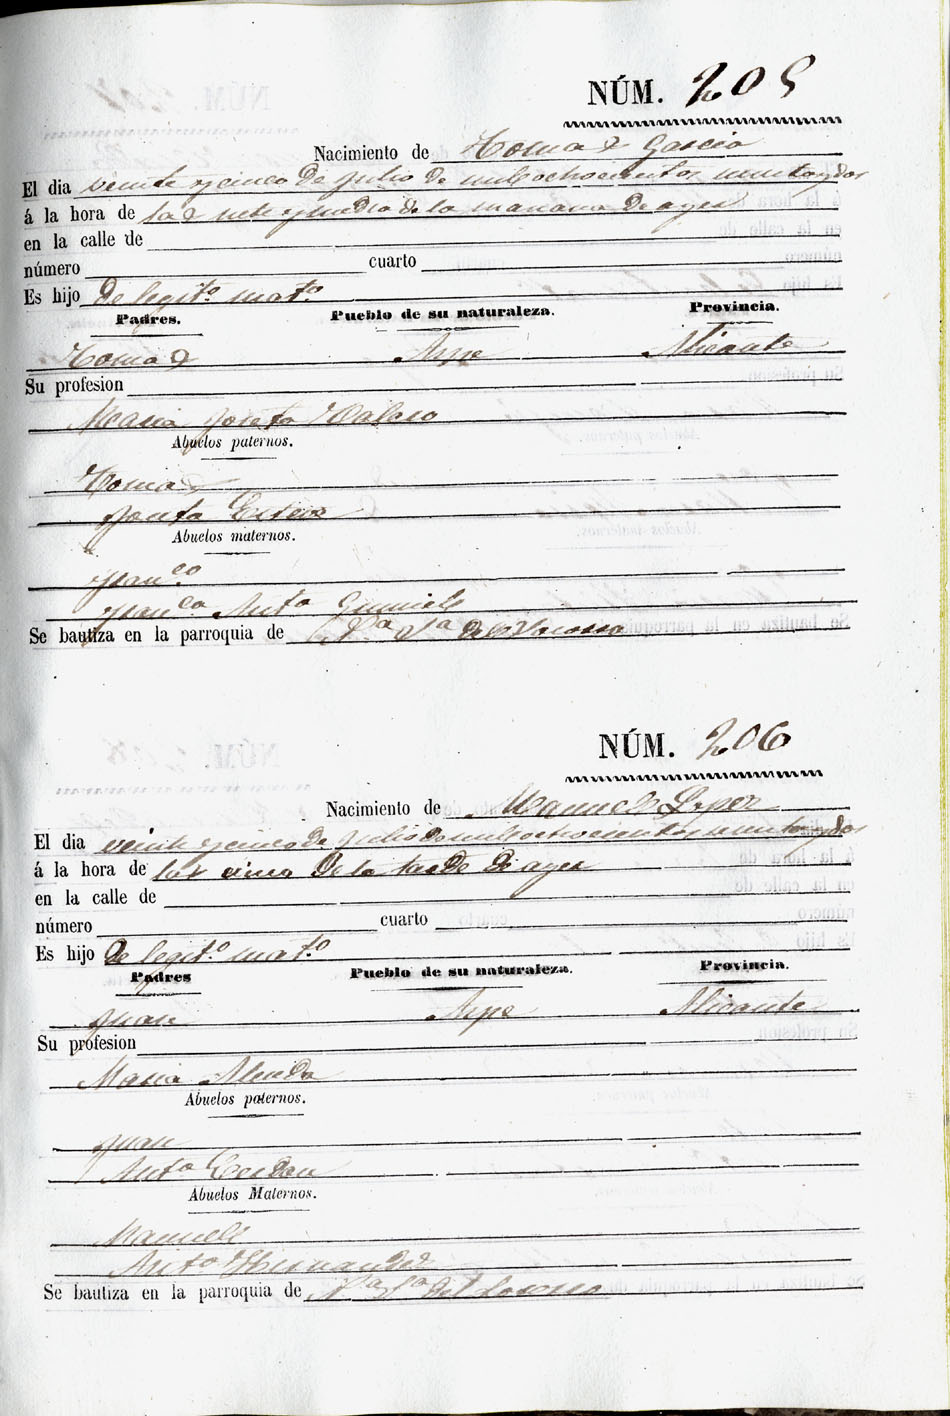 NÚM. 205
Nacimiento de Tomas Garcia
El dia veinte y cinco de Julio de mil ochocientos sesenta y dos
á la hora de las siete y media de la mañana de ayer
en la calle de
número cuarto
Es hijo de legit.o mat.o
Padres. Pueblo de su naturaleza. Provincia.
Tomas Aspe Alicante
Su profesion
Maria Josefa
Abuelos paternos.
Tomas
Josefa
Abuelos maternos.
Fran.co
Fran.ca Ant.a
Se bautiza en la parroquia de N.a S.a del Socorro
NÚM. 206
Nacimiento de Manuel Lopez
El dia veinte y cinco de Julio de mil ochocientos sesenta y dos
á la hora de las cinco de la tarde de ayer
en la calle de
número cuarto
Es hijo de legit.o mat.o
Padres Pueblo de su naturaleza. Provincia.
Juan Aspe Alicante
Su profesion
Maria Almeda
Abuelos paternos.
Juan
Ant.a Cerdan
Abuelos Maternos.
Manuel
Ant.a Hernandez
Se bautiza en la parroquia de N.a S.a del Socorro